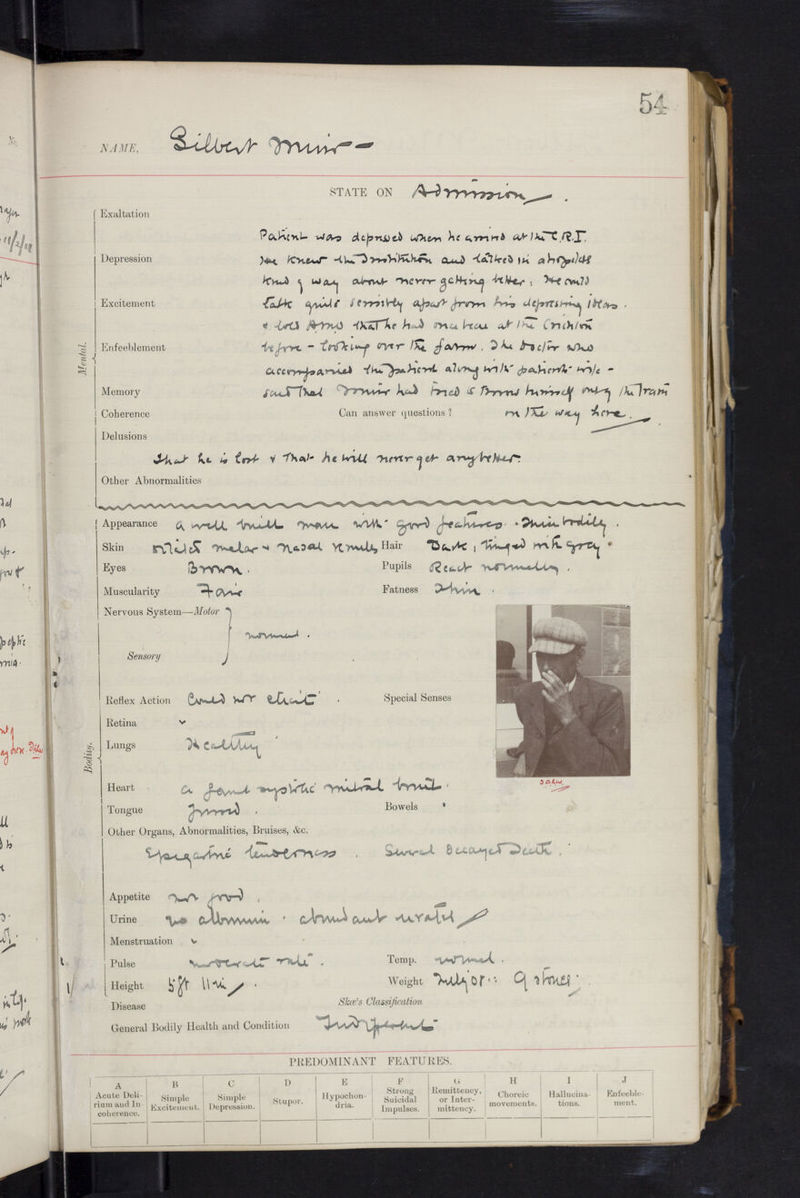 54
NAME, Gilbert Muir
STATE ON Admission.
Exaltation
Patient was depressed when he arrived at the C.R.I.
Depression
He knew the Institution and talked in a hopeless
kind of way about never getting better; He could
Excitement
talk quite sensibly apart from his depressing ideas.
& told that he had once been at the Crichton
Enfeeblement
before - looking over the farm. The Doctor who
Mental.
accompanied the patient along with patient's wife -
Memory
said that Muir had tried to throw himself out of the Train
Coherence Can answer questions? on the way here.
Delusions
That he is lost & that he will never get any better.
Other Abnormalities
Appearance a well built man with good features. Thin bodily.
Skin malar & nasal Hair Dark, tinged with grey.
Eyes Brown. Pupils React normally.
Muscularity Fair Fatness Thin.
Nervous System—Motor
normal.
Sensory
Reflex Action Could not elicit. Special Senses
Retina
Lungs Healthy
Bodily.
Heart a faint systolic mitral bruit.
Tongue furred. Bowels
Other Organs, Abnormalities, Bruises, &c.
Epigastric tenderness. Several Decayed Teeth.
Appetite not good.
Urine no albumin. abundant urates
Menstruation
Pulse moderate rate. Temp. normal.
Height 5 ft 11 in. Weight 9 stones.
Disease Skae's Classification
General Bodily Health and Condition Indifferent
PREDOMINANT FEATURES.
A B C D E F G H I J
Acute Delirium and Incoherence. Simple Excitement. Simple Depression. Stupor. Hypochondria. Strong Suicidal Impulses. Remittency, or Intermittency. Choreic movements. Hallucinations. Enfeeblement.